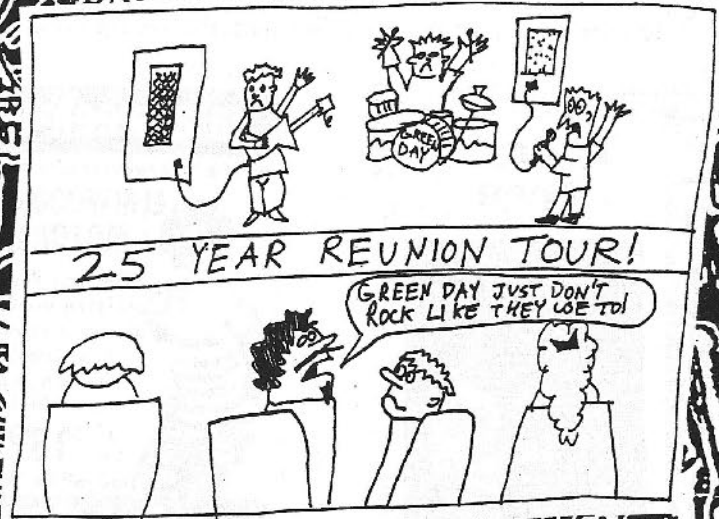 GREEN
DAY
25 YEAR REUNION TOUR!
GREEN DAY JUST DON'T
ROCK LIKE THEY USE TO!